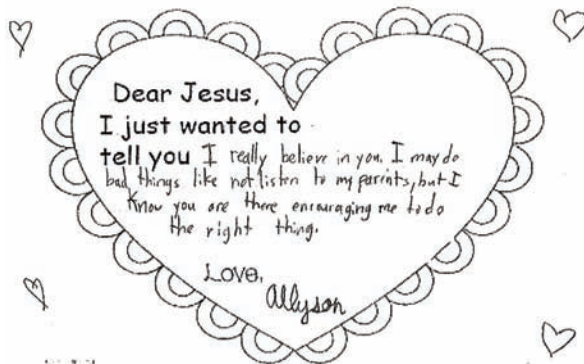 Dear Jesus,
I just wanted to
tell you I really believe in you. I may do
bad things like not listen to my parents, but I
know you are there encouraging me to do
the right thing.
Love,
Allyson